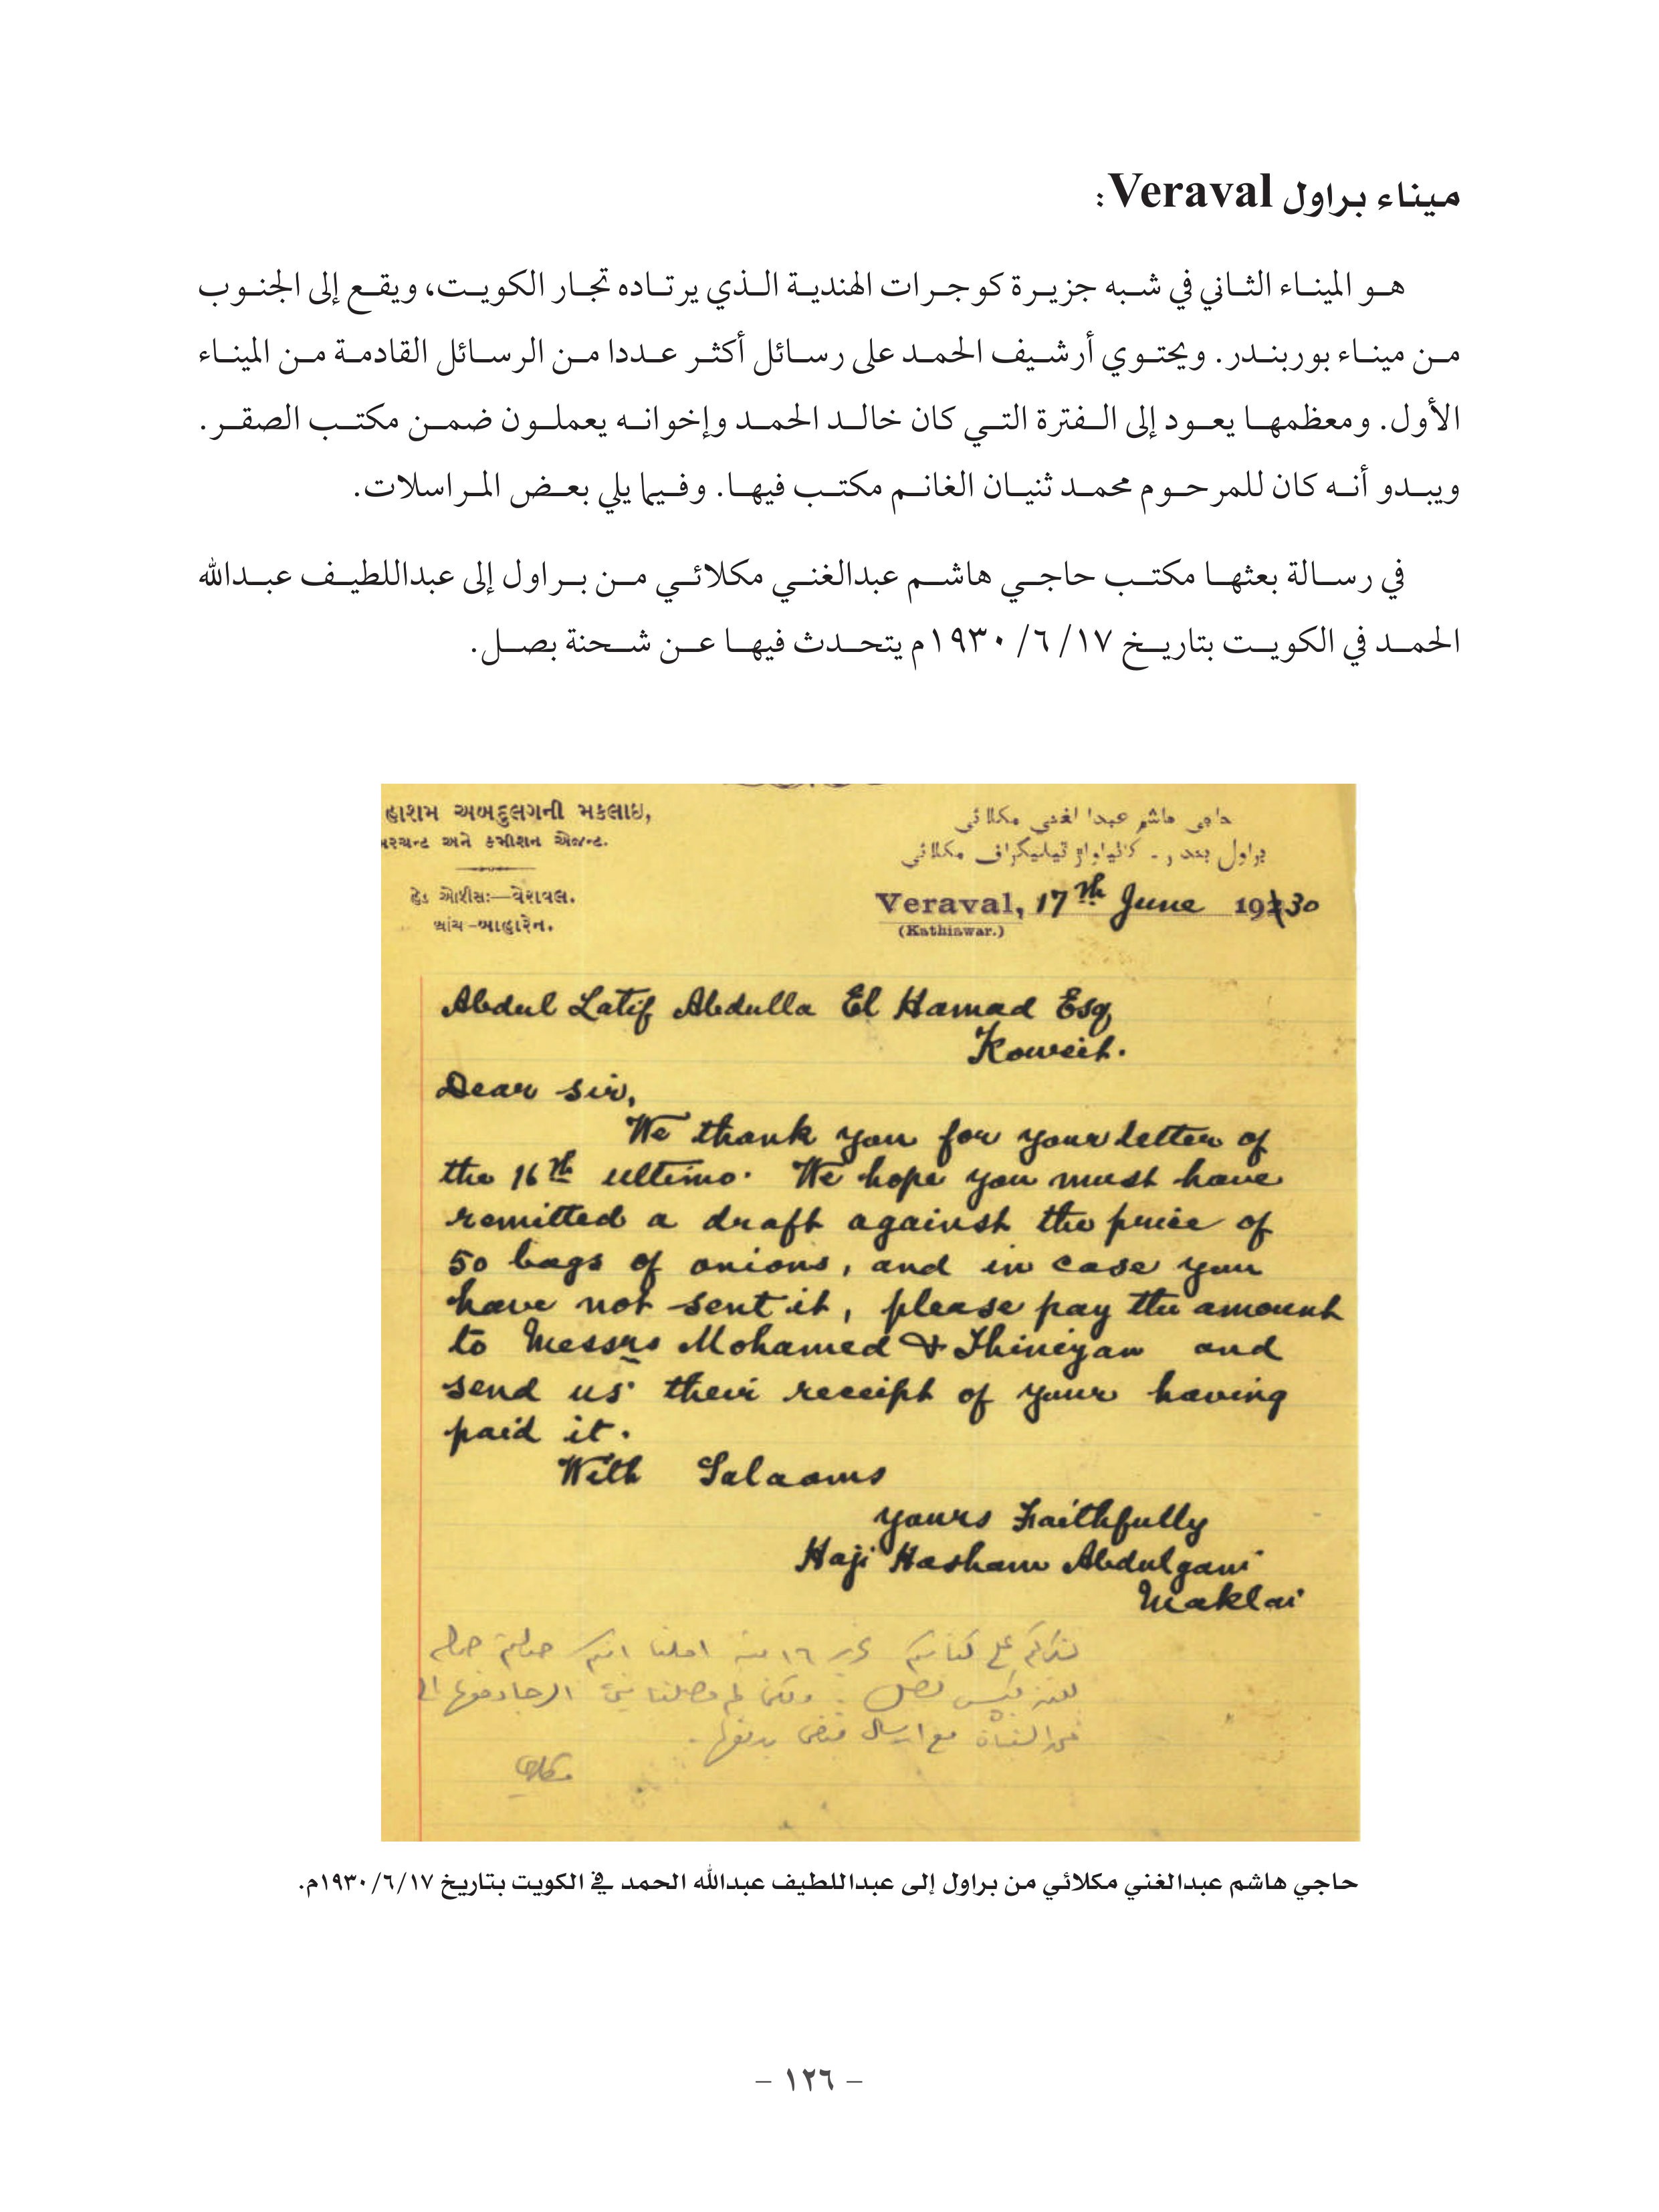 ميناء براول Veraval:
هو الميناء الثاني في شبه جزيرة كوجرات الهندية الذي يرتاده تجار الكويت، ويقع إلى الجنوب
من ميناء بوربندر. ويحتوي أرشيف الحمد على رسائل أكثر عددا من الرسائل القادمة من الميناء
الأول. ومعظمها يعود إلى الفترة التي كان خالد الحمد وإخوانه يعملون ضمن مكتب الصقر.
ويبدو أنه كان للمرحوم محمد ثنيان الغانم مكتب فيها. وفيما يلي بعض المراسلات.
في رسالة بعثها مكتب حاجي هاشم عبدالغني مكلائي من براول إلى عبداللطيف عبدالله
الحمد في الكويت بتاريخ ١٧/ ٦/ ١٩٣٠م يتحدث فيها عن شحنة بصل.
હાશમ અબદુલગની મકલાઇ,
મરચન્ટ અને કમીશન એજન્ટ.
હેડ ઓફીસ:—વેરાવલ.
બ્રાંચ-બાહારેન.
حاجي هاشم عبدا لغني مكلائي
براول بندر ـ كاتياواڑ تيليگراف مكلائي
Veraval, 17th June 1930
(Kathiawar.)
Abdul Latif Abdulla El Hamad Esq
Koweit.
Dear Sir,
We thank you for your letter of
the 16th ultimo. We hope you must have
remitted a draft against the price of
50 bags of onions, and in case you
have not sent it, please pay the amount
to Messrs Mohamed & Thineyan and
send us their receipt of your having
paid it.
With Salaams
yours Faithfully
Haji Hasham Abdulgani
Maklai
على كتابكم ١٦ منه املنا انكم
بصل. ولكن لم وصلنا الرجا دفعها الى
مع ارسال قبض بدفعها.
مكلائي
حاجي هاشم عبدالغني مكلائي من براول إلى عبداللطيف عبدالله الحمد في الكويت بتاريخ ١٩٣٠/٦/١٧م.
– ١٢٦ –